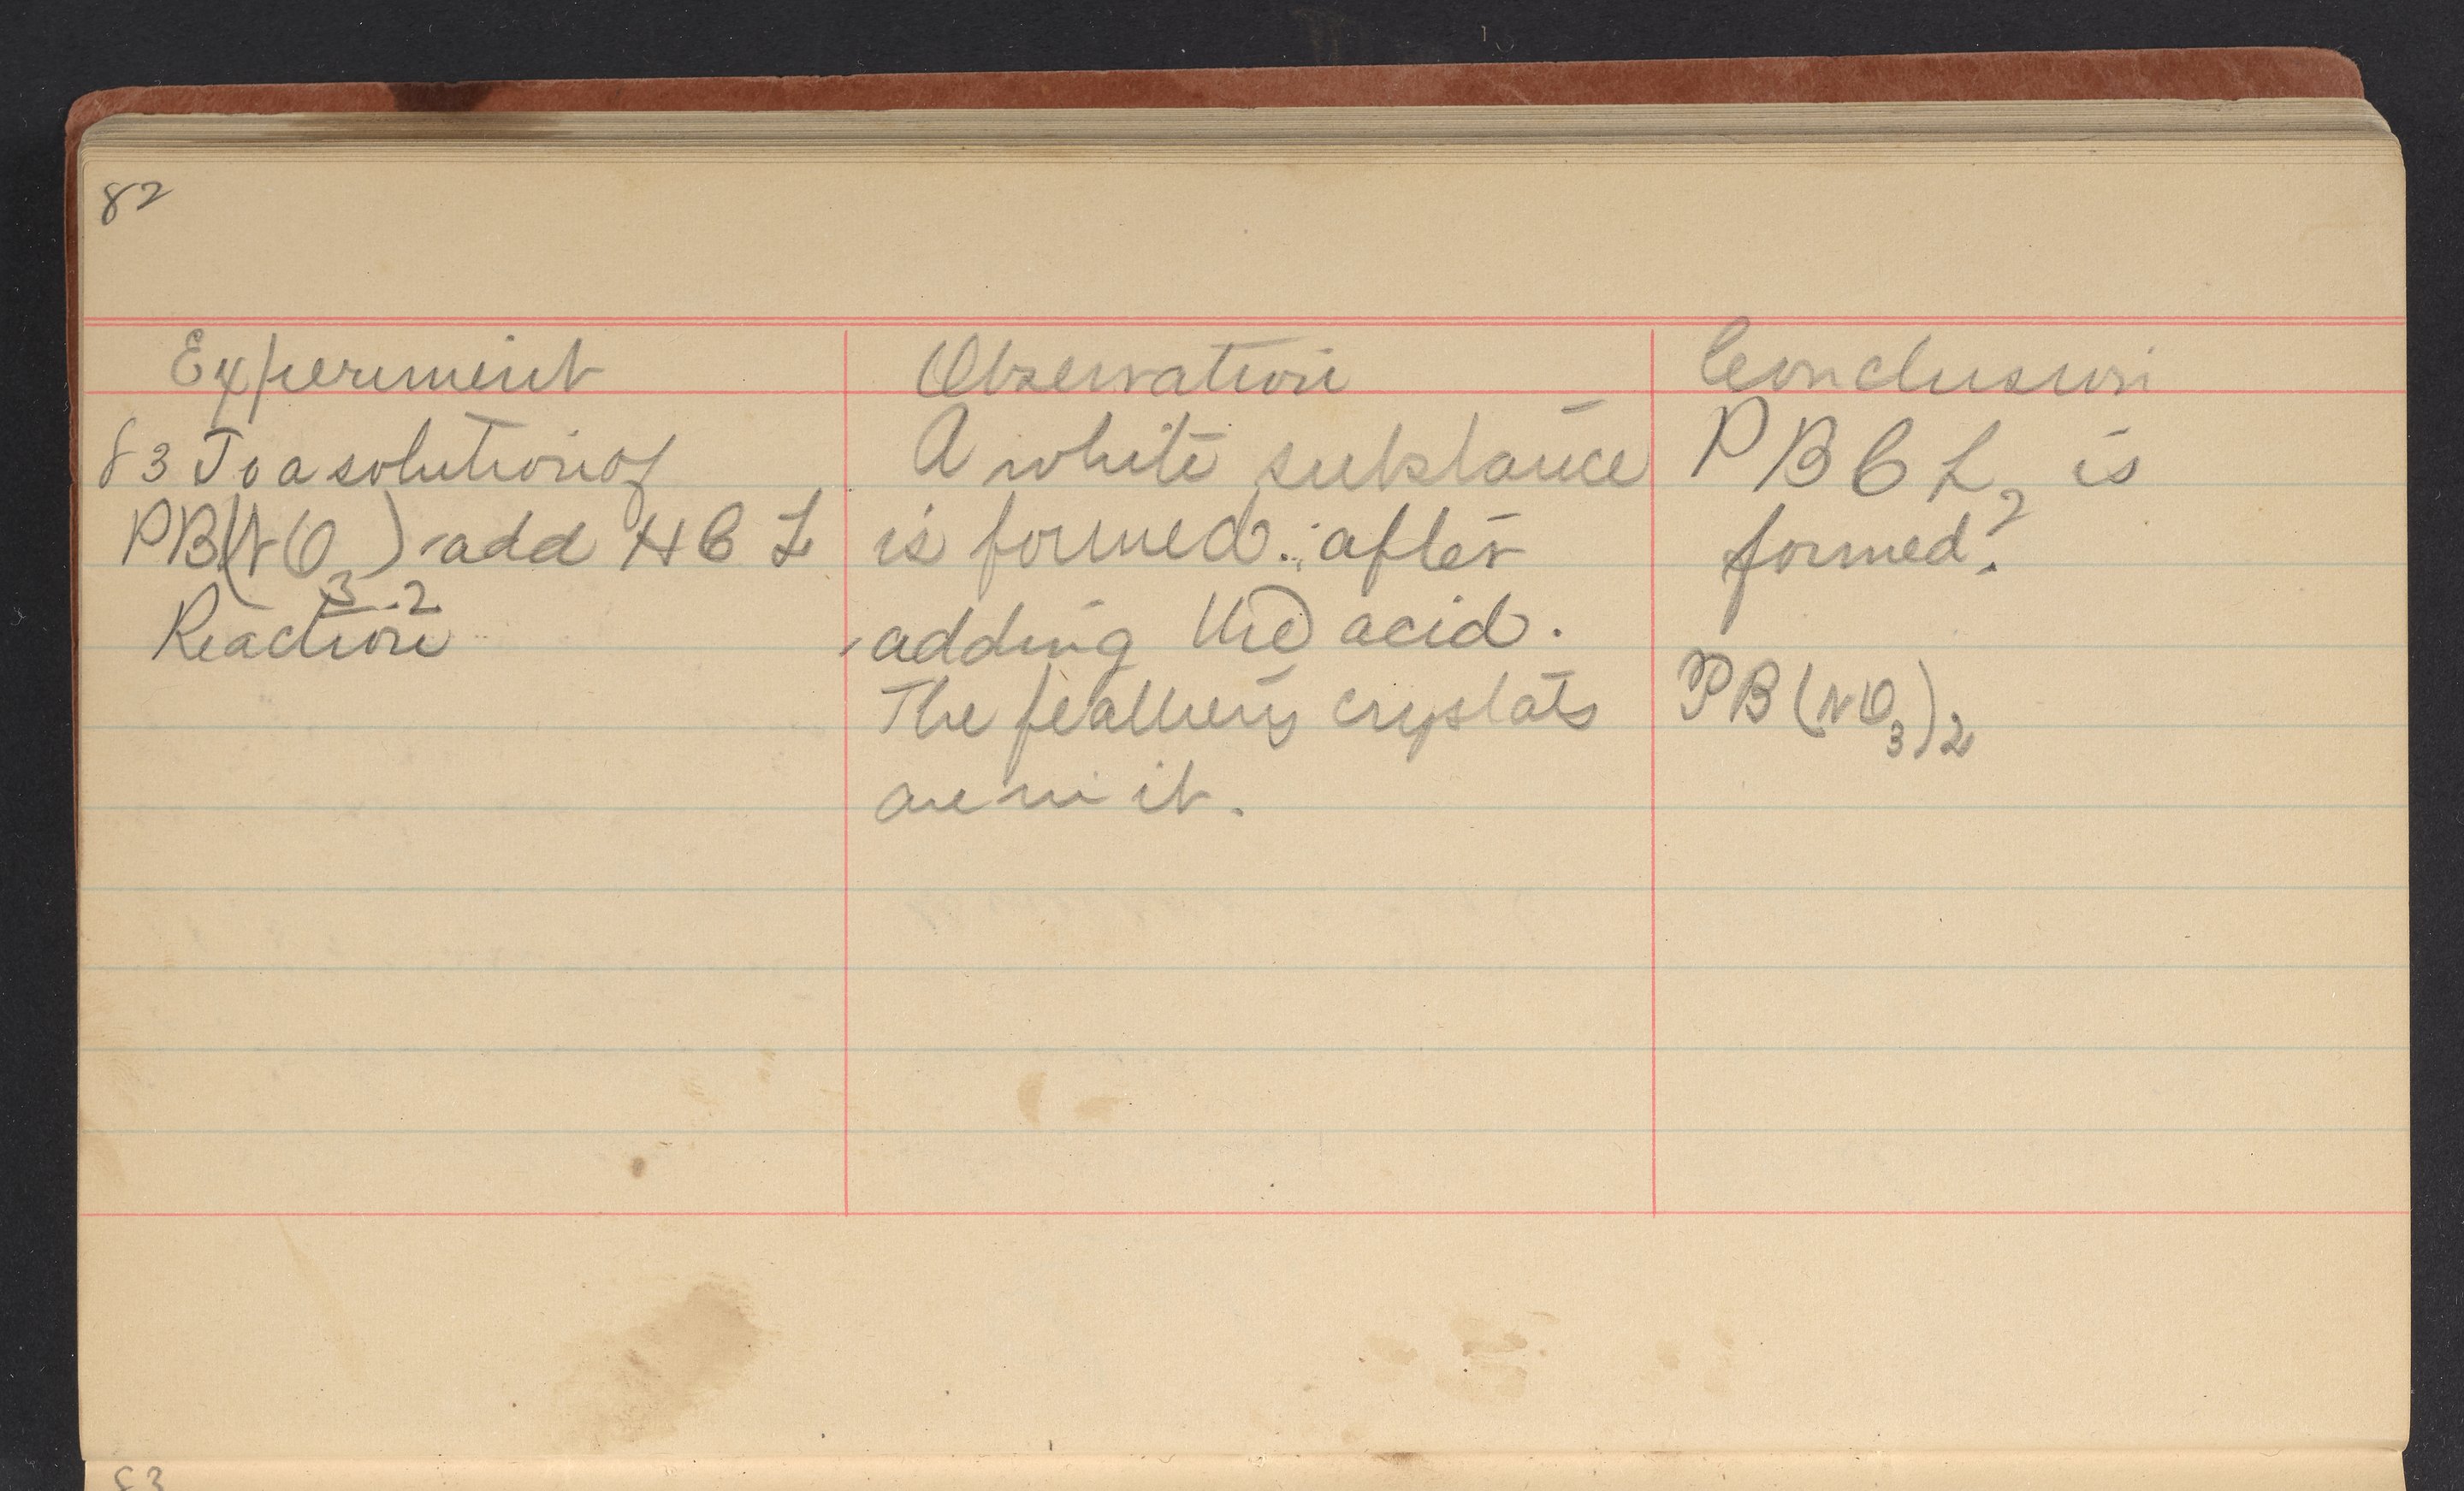 82
Experiment
83 To a solution of
PB(NO3)2 add HCL
Reaction
Observation
A white substance
is formed. after
adding the acid.
The feathery crystals
are in it.
Conclusion
PBCL2 is
formed.
PB(NO3)2
83